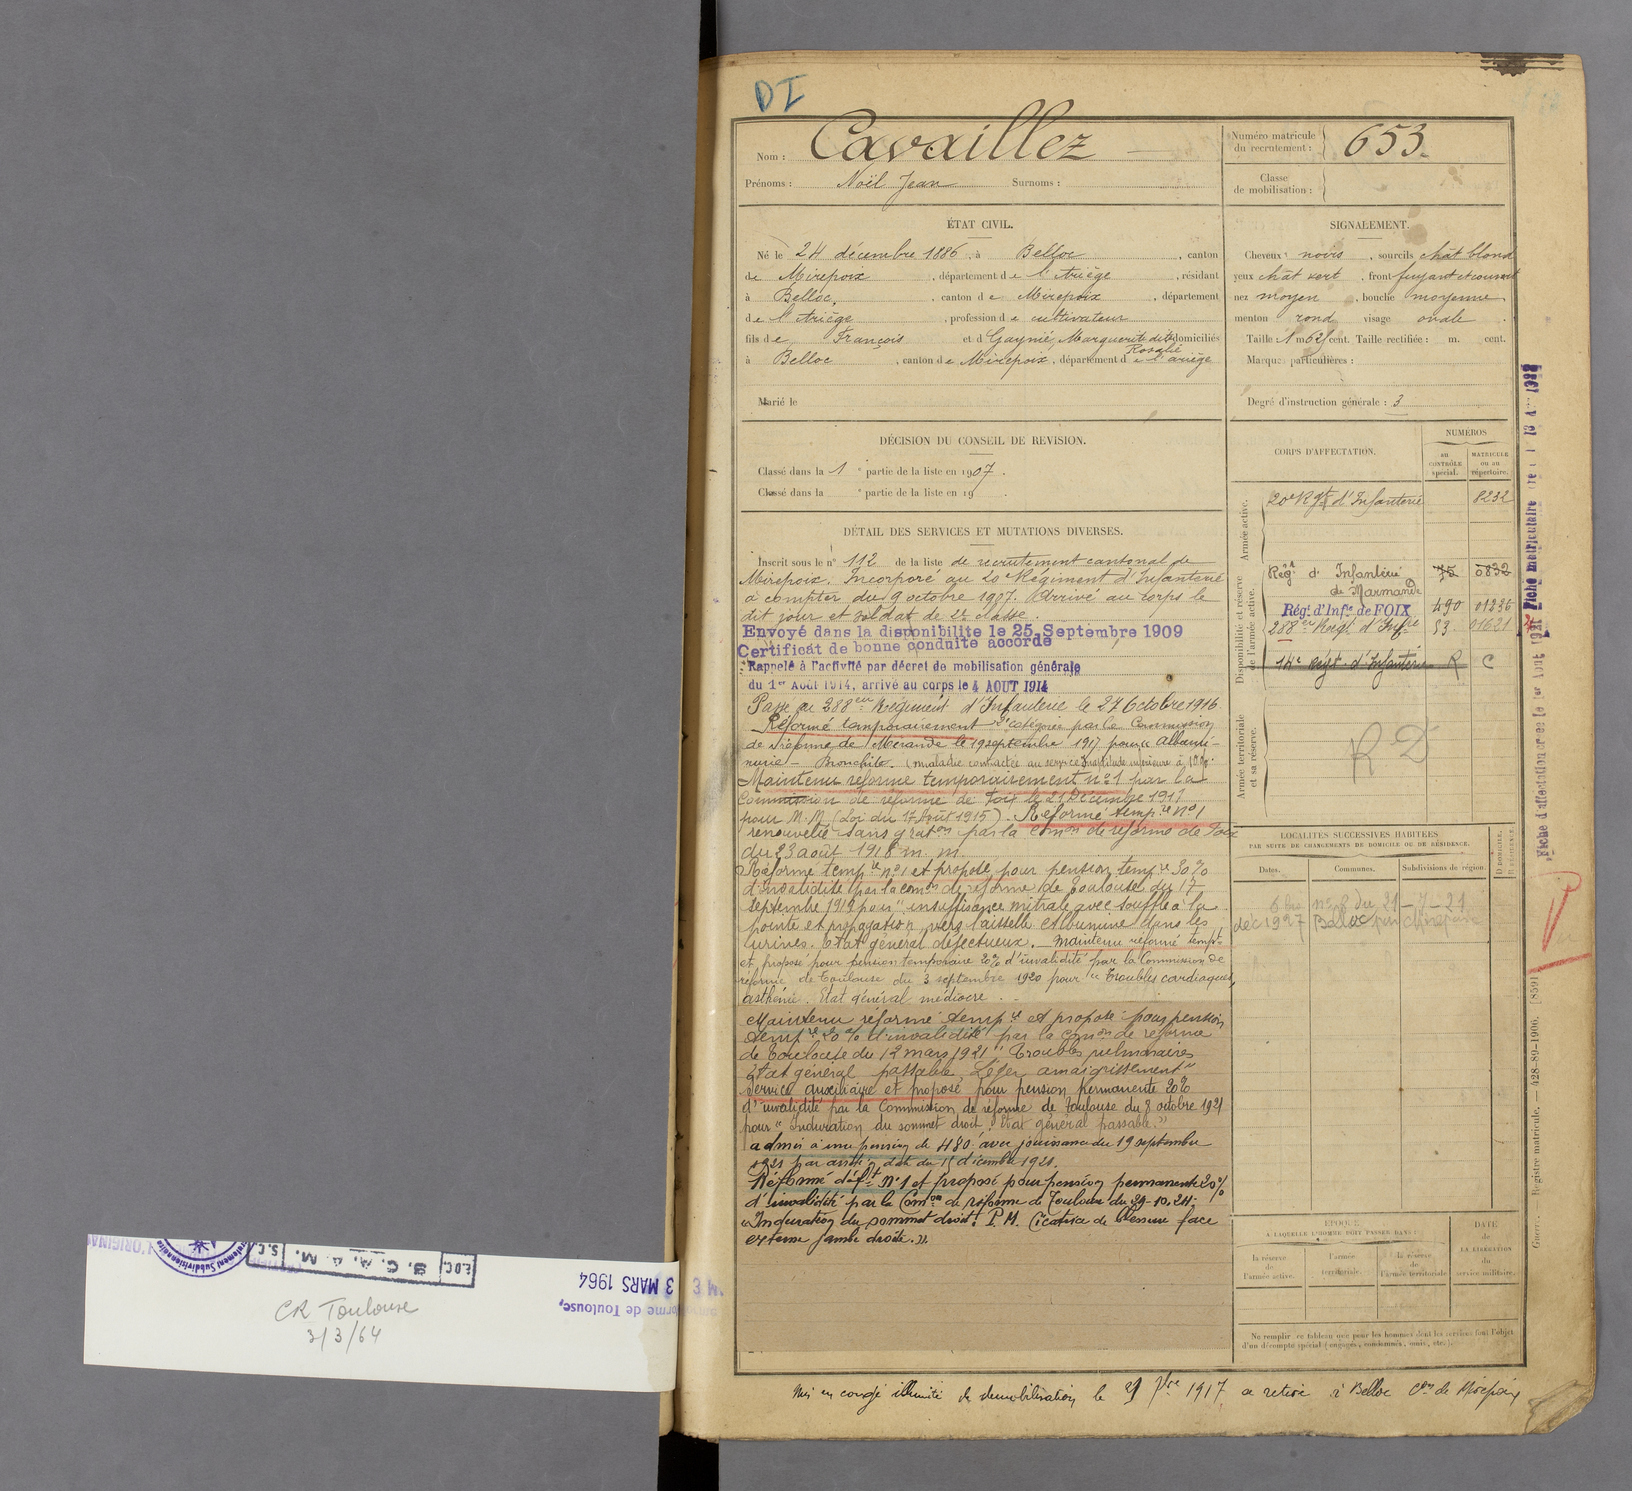 DI
Nom : Cavaillez
Prénoms : Noël Jean Surnoms :
Numéro matricule du recrutement : 653.
Classe de mobilisation :
ÉTAT CIVIL.
Né le 24 décembre 1886, à Belloc, canton
de Mirepoix, département de l'Ariège, résidant
à Belloc, canton de Mirepoix, département
de l'Ariège, profession de cultivateur
fils de François et d Gaynié, Marguerite dite domiciliés
Rosalie
à Belloc, canton de Mirepoix, département de l'ariège
Marié le
SIGNALEMENT.
Cheveux noirs, sourcils chât blond
yeux chât vert, front fuyant et couvert
nez moyen, bouche moyenne
menton rond visage ovale.
Taille 1 m 62 cent. Taille rectifiée : m. cent.
Marques particulières :
Degré d'instruction générale : 3
DÉCISION DU CONSEIL DE REVISION.
Classé dans la 1e partie de la liste en 1907.
Classé dans la e partie de la liste en 19 .
DÉTAIL DES SERVICES ET MUTATIONS DIVERSES.
Inscrit sous le n° 112 de la liste de recrutement cantonal de
Mirepoix. Incorporé au 20e Régiment d'Infanterie
à compter du 9 octobre 1907. Arrivé au corps le
dit jour et soldat de 2e classe.
Envoyé dans la disponibilité le 25 Septembre 1909
Certificat de bonne conduite accordé
Rappelé à l'activité par décret de mobilisation générale
du 1er Août 1914, arrivé au corps le 4 AOUT 1914
Passé au 288eme Régiment d'Infanterie le 27 Octobre 1916.
Réformé temporairement 2e catégorie par la Commission
de réforme de Mirande le 19 septembre 1917 pour « Albumi-
nurie - Bronchite. (maladie contractée au service) aptitude inférieure à 10%.
Maintenu réformé temporairement n°1 par la
Commission de réforme de Foix le 21 Décembre 1917
pour M.M. (Loi du 17 Août 1915). Réforme temp.re n°1
renouvelée sans grat.on par la Com.on de réforme de Foix
du 23 août 1918 m. m.
Réformé temp.re n°1 et proposé pour pension temp.re 30%
d'invalidité par la com.on de réforme de Toulouse du 17
septembre 1919 pour "insuffisance mitrale avec souffle à la
pointe et propagation vers l'aisselle albumine dans les
urines. Etat général défectueux. - Maintenu réformé temp.re
et proposé pour pension temporaire 20% d'invalidité par la Commission de
réforme de Toulouse du 3 septembre 1920 pour « Troubles cardiaques,
asthénie. Etat général médiocre.
Maintenu réformé temp.re et proposé pour pension
temp.re 20% d'invalidité par la Com.on de réforme
de Toulouse du 12 mars 1921 "Troubles pulmonaires
Etat général passable. Léger amaigrissement"
Service auxiliaire et proposé pour pension permanente 20%
d'invalidité par la Commission de réforme de Toulouse du 8 octobre 1921
pour "Induration du sommet droit. Etat général passable."
admis à une pension de 480 avec jouissance du 19 septembre
1921 par arrêté en date du 15 décembre 1921.
Réformé déf.t N°1 et proposé pour pension permanente 20%
d'invalidité par la Com.on de réforme de Toulouse du 29-10.24.
« Induration du sommet droit. P.M. Cicatrice de blessure face
externe jambe droite. ».
CORPS D'AFFECTATION.
NUMÉROS
au CONTRÔLE spécial.
MATRICULE ou au répertoire.
Armée active.
20e Rgt d'Infanterie 8232
Disponibilité et réserve de l'armée active.
Régt d'Infanterie 75 0832
de Marmande
Régt d'Infie de FOIX 490 01236
288eme Régt d'Infie 53 01621
14e Régt d'Infanterie R C
Armée territoriale et sa réserve.
RD
LOCALITÉS SUCCESSIVES HABITÉES
PAR SUITE DE CHANGEMENTS DE DOMICILE OU DE RÉSIDENCE.
Dates. Communes. Subdivisions de région.
D DOMICILE. R RÉSIDENCE.
n° 8 du 21-7-21
déc 1927 Belloc par Mirepoix
ÉPOQUE
A LAQUELLE L'HOMME DOIT PASSER DANS :
la réserve de l'armée active.
l'armée territoriale.
la réserve de l'armée territoriale
DATE DE LA LIBÉRATION du service militaire.
Ne remplir ce tableau que pour les hommes dont les services font l'objet
d'un décompte spécial (engagés, condamnés, omis, etc.)
Mis en congé illimité de démobilisation le 29 7bre 1917 se retire à Belloc Con de Mirepoix
Fiche matriculaire
Fiche d'affectation créée le 1er Aout 1921
Guerre. Registre matricule. — 428-89-1906. [859]
L'ORIGINAL
Subdivisionnaire
B. C. A. M.
3 MARS 1964
orme de Toulouse,
CR Toulouse
3/3/64